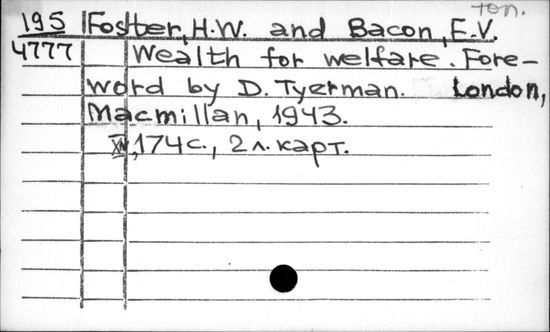 топ.
195 Foster, H.W. and Bacon, E.V.
4777 Wealth for welfare. Fore-
word by D. Tyerman. London,
Macmillan, 1943.
XIV, 174 с., 2 л. карт.